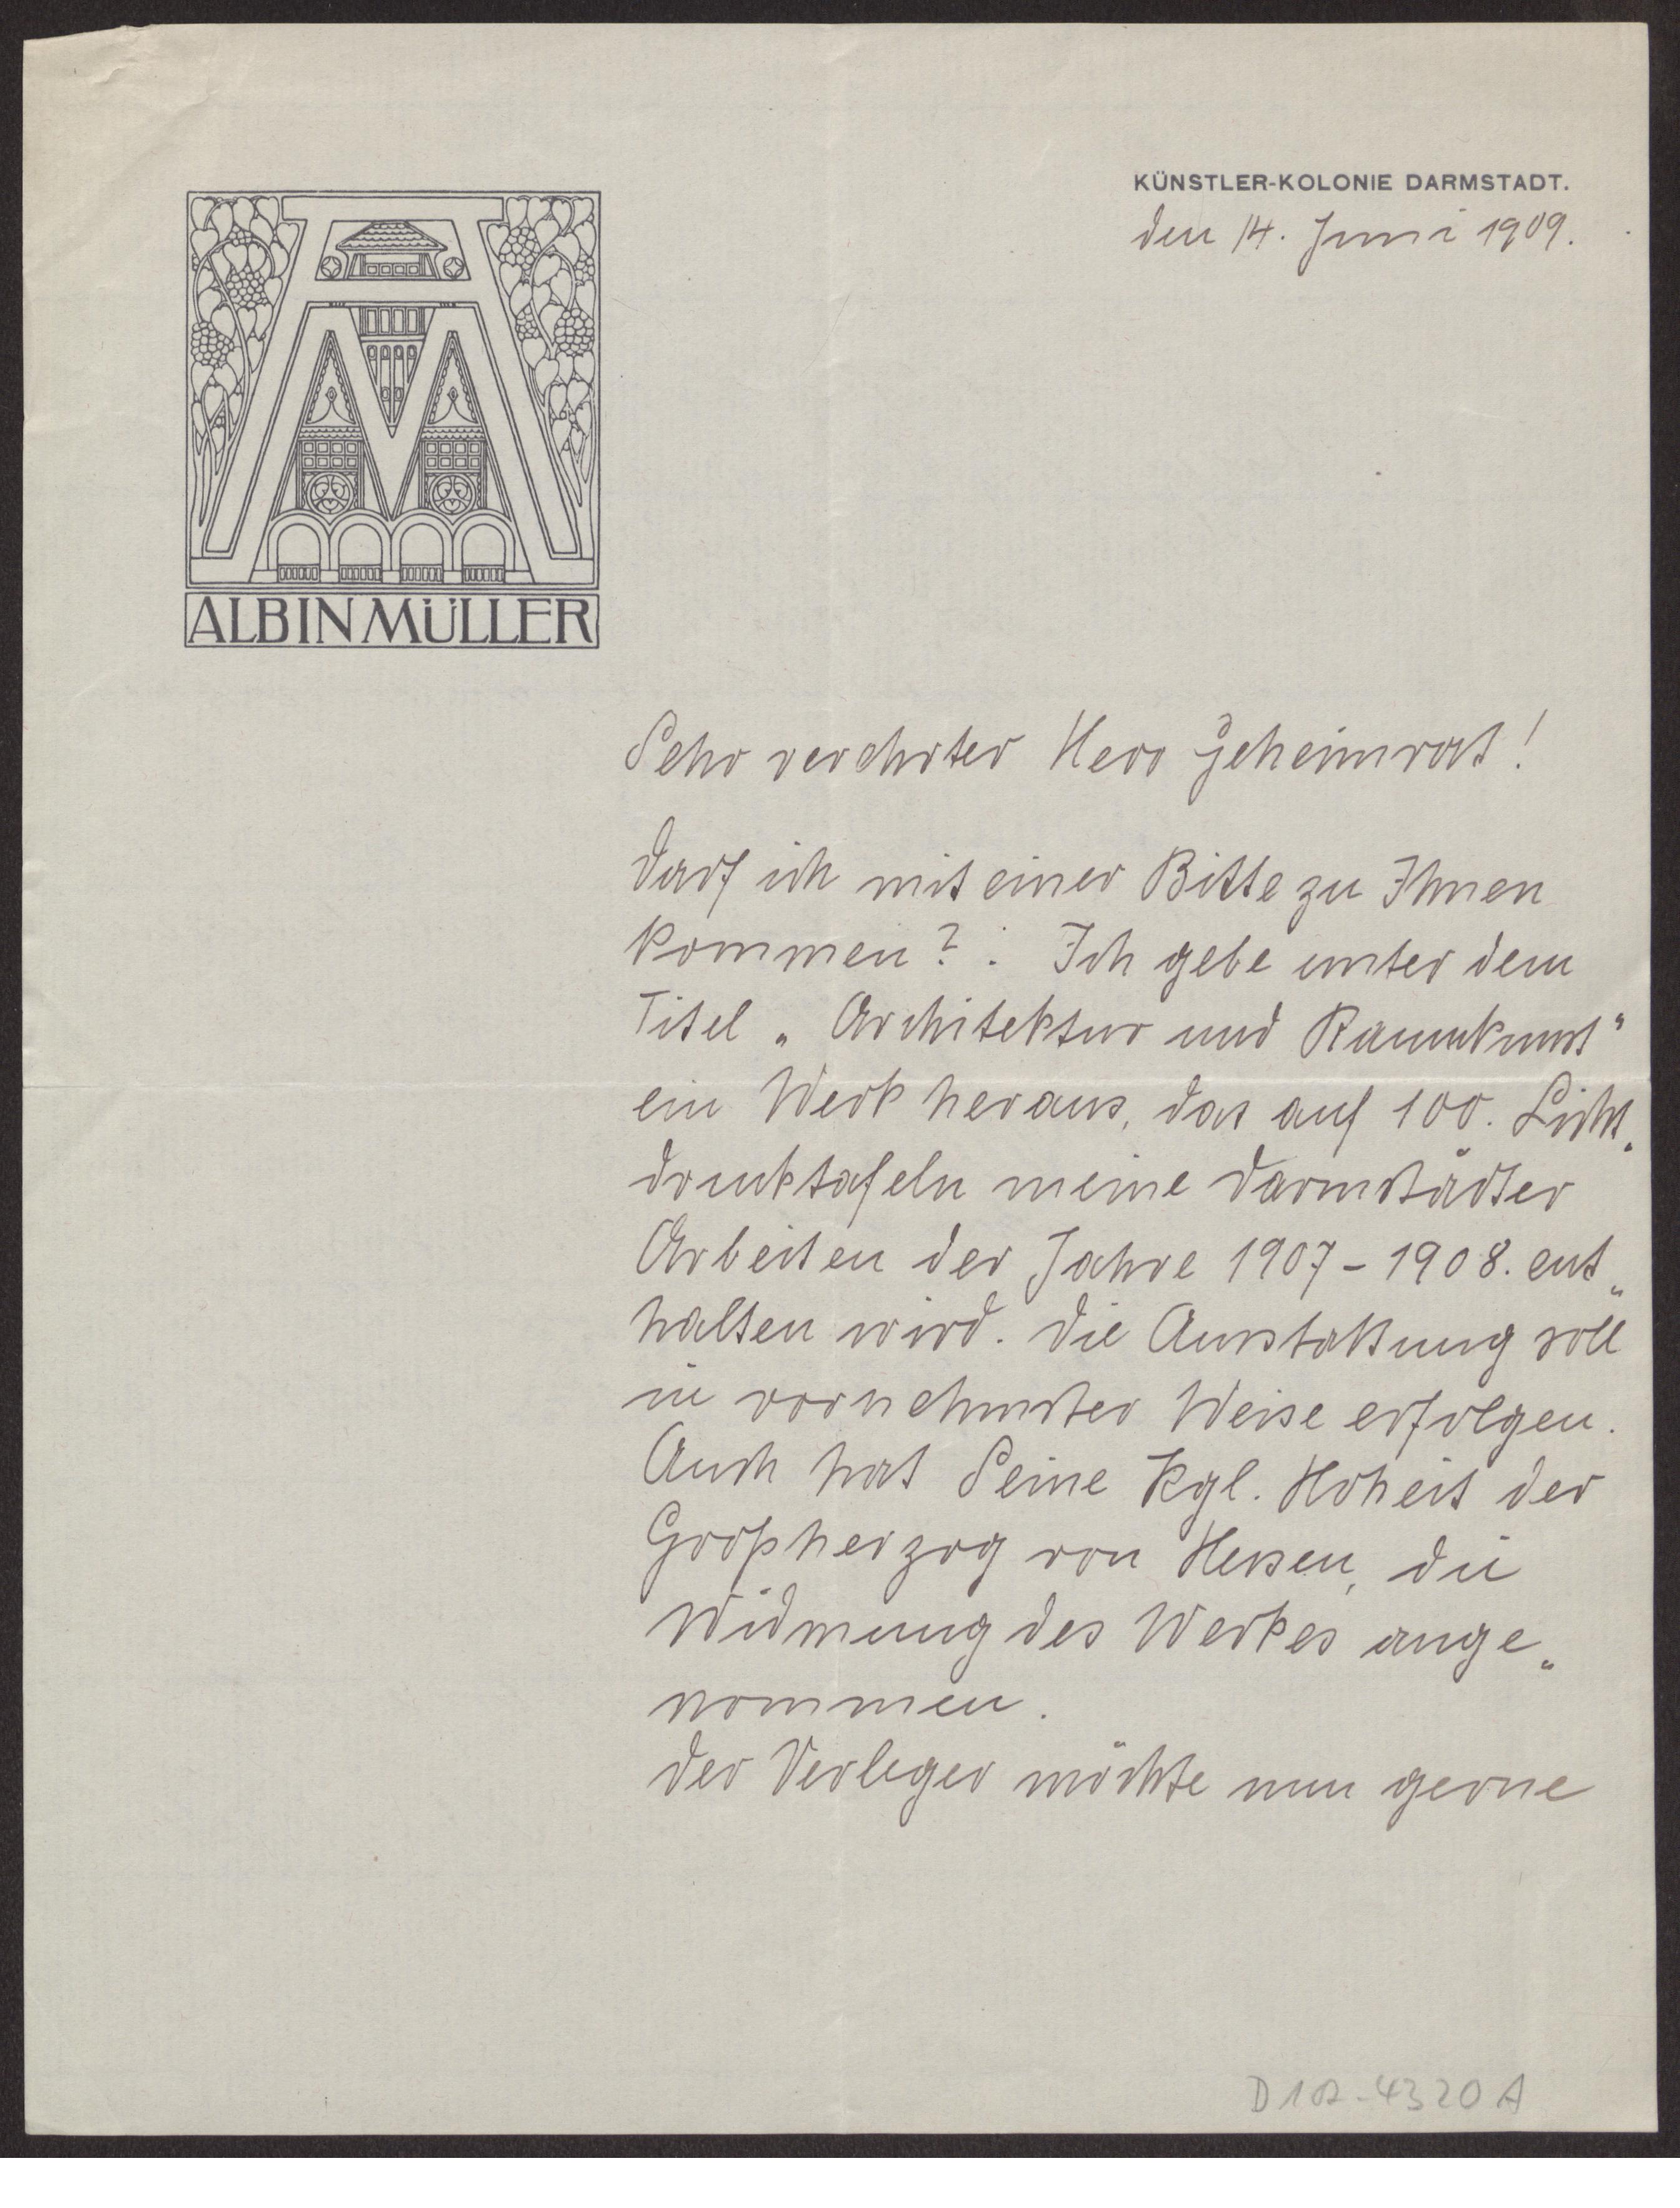 KÜNSTLER-KOLONIE DARMSTADT.
den 14. Juni 1909.
ALBIN MÜLLER
Sehr verehrter Herr Geheimrat!
Darf ich mit einer Bitte zu Ihnen
kommen?: Ich gebe unter dem
Titel „Architektur und Raumkunst"
ein Werk heraus, das auf 100. Licht„
drucktafeln meine Darmstädter
Arbeiten der Jahre 1907-1908. ent„
halten wird. Die Ausstattung soll
in vornehmster Weise erfolgen.
Auch hat Seine Kgl. Hoheit der
Großherzog von Hessen, die
Widmung des Werkes ange„
nommen.
Der Verleger möchte nun gerne
D102-4320 A